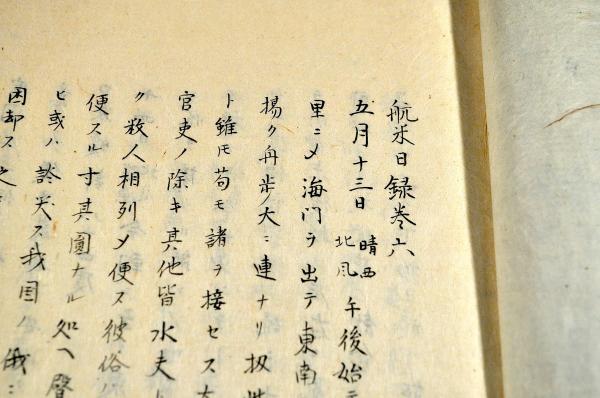 航米日録巻六
五月十三日 晴西北風 午後始テ
里ニメ海門ヲ出テ東南
揚ク舟歩ノ大ニ連ナリ扨
ト雖モ苟モ諸ヲ接セス
官吏ノ除キ其他皆水夫
ク殺人相列メ便ス彼俗ハ
便スル寸其圖ナル知ヘ
ヒ或ハ診笑ス我国ノ俄ニ
困却ス之